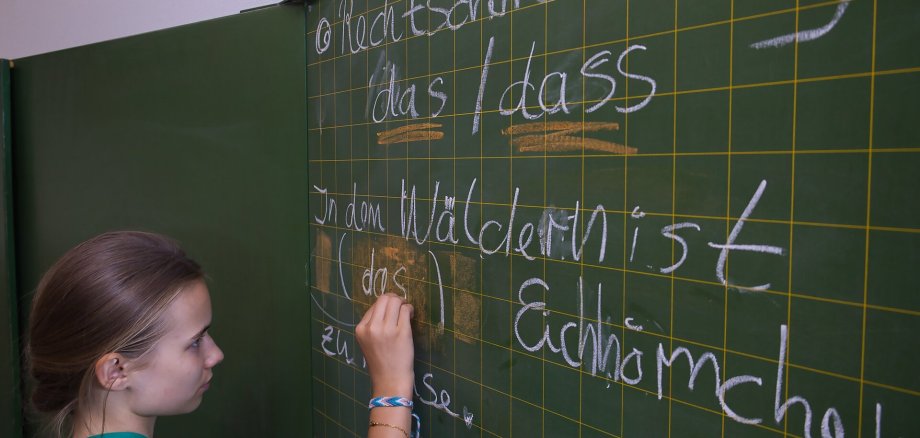 Rechtsch
das / dass
In den Wäldern ist
( das ) Eichhörnche
zu